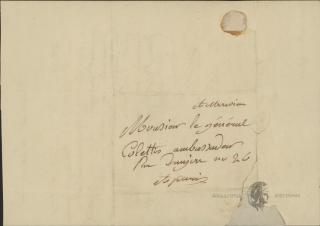 A Monsieur
Monsieur le général
Colettis ambassadeur
Rue no 26
A paris